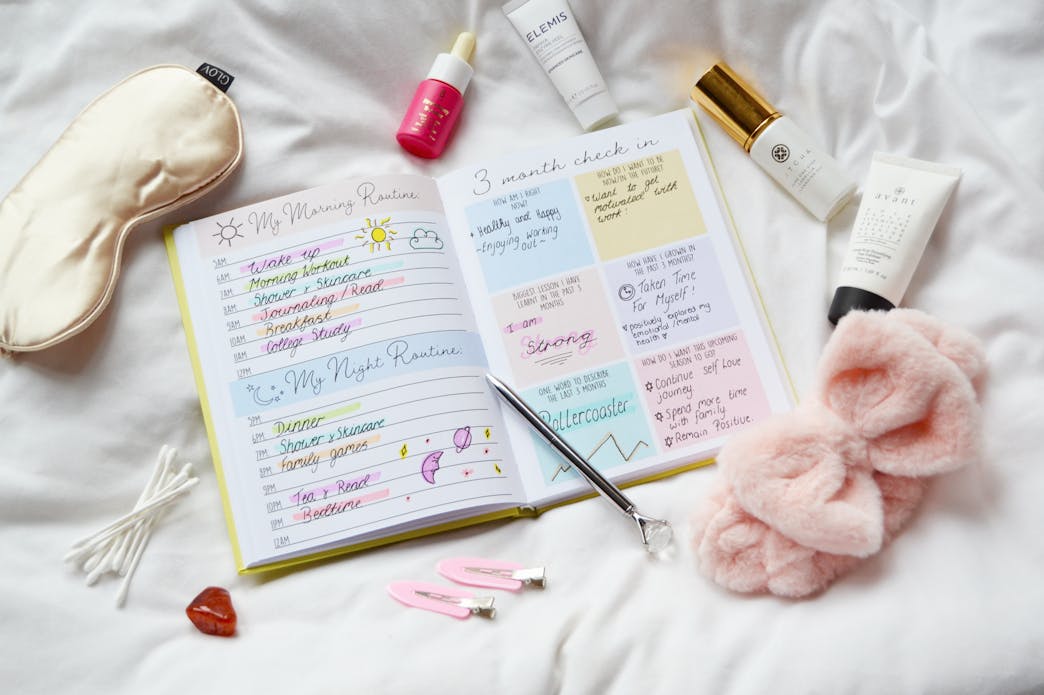 GLOV
ELEMIS
avant
My Morning Routine:
5AM
6AM Wake up
7AM Morning Workout
8AM Shower & Skincare
Journaling / Read
9AM Breakfast
10AM College Study
11AM
12PM
My Night Routine:
5PM
6PM Dinner
7PM Shower & Skincare
8PM Family games
9PM
10PM Tea & Read
11PM Bedtime
12AM
3 month check in
HOW AM I RIGHT
NOW?
Healthy and Happy
~Enjoying working
out~
HOW DO I WANT TO BE
NOW/IN THE FUTURE?
Want to get
motivated with
work!
BIGGEST LESSON I HAVE
LEARNT IN THE PAST 3
MONTHS
I am
Strong
HOW HAVE I GROWN IN
THE PAST 3 MONTHS?
Taken Time
For Myself!
positively explored my
emotional/mental
health
ONE WORD TO DESCRIBE
THE LAST 3 MONTHS
Rollercoaster
HOW DO I WANT THIS UPCOMING
SEASON TO GO?
Continue self love
journey.
Spend more time
with family
Remain Positive.